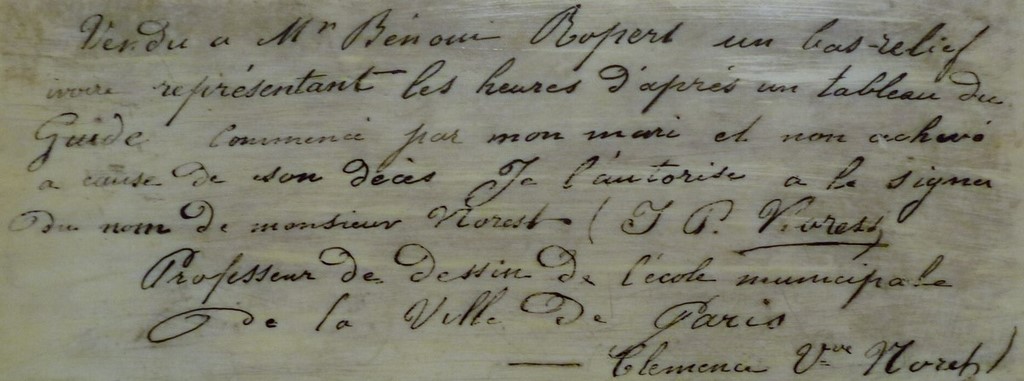 Vendu a Mr Benoni Ropert un bas-relief
ivoire représentant les heures d'après un tableau du
Guide commencé par mon mari et non achevé
a cause de son décès Je l'autorise a le signer
du nom de monsieur Norest (J P. Norest,
Professeur de dessin de l'école municipale
de la Ville de Paris
— Clemence Vve Norest)